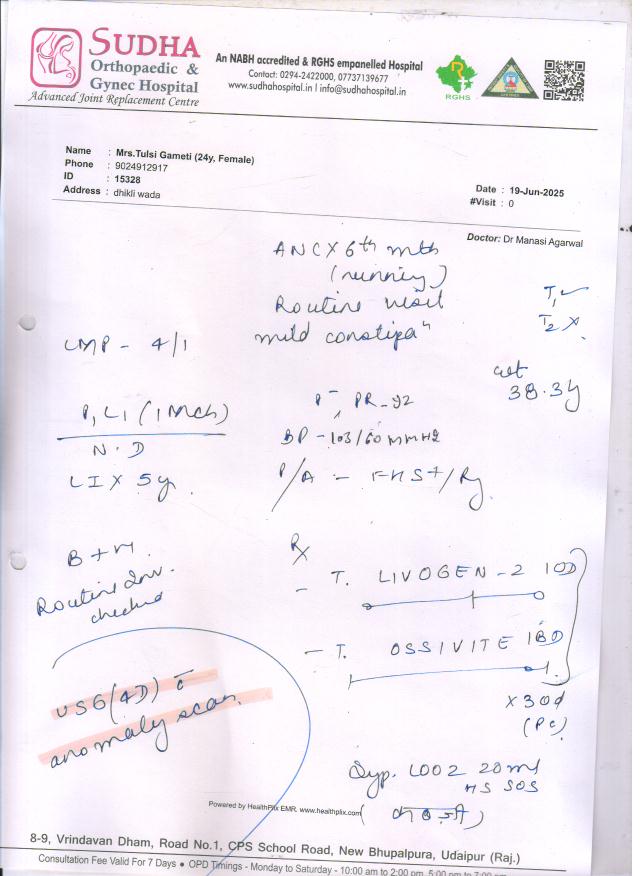 SUDHA
Orthopaedic &
Gynec Hospital
Advanced Joint Replacement Centre
An NABH accredited & RGHS empanelled Hospital
Contact: 0294-2422000, 07737139677
www.sudhahospital.in | info@sudhahospital.in
RGHS
Name : Mrs.Tulsi Gameti (24y, Female)
Phone : 9024912917
ID : 15328
Address : dhikli wada
Date : 19-Jun-2025
#Visit : 0
Doctor: Dr Manasi Agarwal
ANC X 6th mth
(running)
Routine visit
mild constipaⁿ
T1 ✓
T2 X
LMP - 4/1
wt
38.3
P1L1 (1 Mch)
N.D
LI X 5y
PR-92
BP - 103/60 MMHG
P/A - FHS+/Rg
B+ve
Routine Inv.
checked
USG (4D) c̄
anomaly scan
Rx
- T. LIVOGEN-Z 1OD
- T. OSSIVITE 1BD
X 30d
(PC)
Syp. LOOZ 20ml
HS SOS
(कब्जी)
Powered by HealthPlix EMR. www.healthplix.com
8-9, Vrindavan Dham, Road No.1, CPS School Road, New Bhupalpura, Udaipur (Raj.)
Consultation Fee Valid For 7 Days ● OPD Timings - Monday to Saturday - 10:00 am to 2:00 pm, 5:00 pm to 7:00